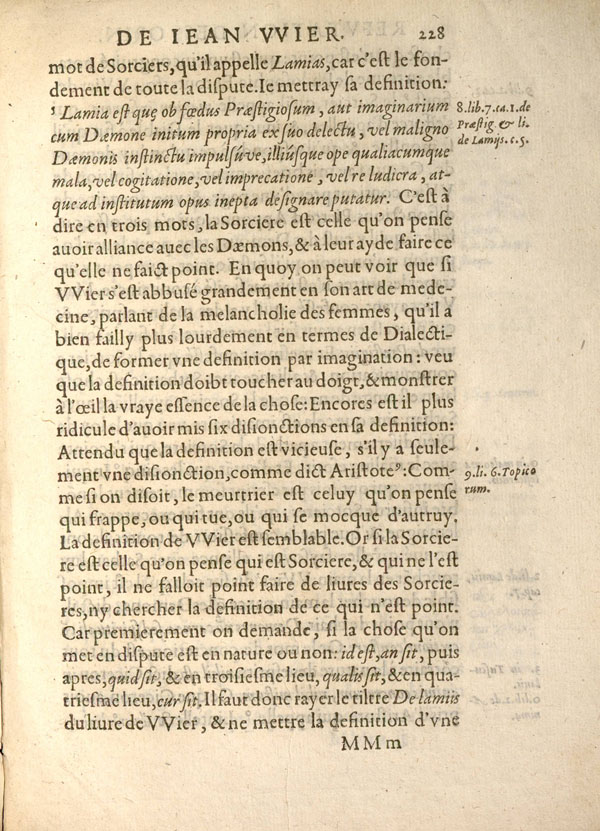 DE IEAN VVIER. 228
mot de Sorciers, qu'il appelle Lamias, car c'est le fon-
dement de toute la dispute. Ie mettray sa definition:
⁸ Lamia est quę ob fœdus Præstigiosum, aut imaginarium
cum Dæmone initum propria ex suo delectu, vel maligno
Dæmonis instinctu impulsúve, illiúsque ope qualiacumque
mala, vel cogitatione, vel imprecatione, vel re ludicra, at-
que ad institutum opus inepta designare putatur. C'est à
dire en trois mots, la Sorciere est celle qu'on pense
auoir alliance auec les Dæmons, & à leur ayde faire ce
qu'elle ne faict point. En quoy on peut voir que si
VVier s'est abbusé grandement en son art de mede-
cine, parlant de la melancholie des femmes, qu'il a
bien failly plus lourdement en termes de Dialecti-
que, de former vne definition par imagination: veu
que la definition doibt toucher au doigt, & monstrer
à l'œil la vraye essence de la chose: Encores est il plus
ridicule d'auoir mis six disionctions en sa definition:
Attendu que la definition est vicieuse, s'il y a seule-
ment vne disionction, comme dict Aristote⁹: Com-
me si on disoit, le meurtrier est celuy qu'on pense
qui frappe, ou qui tue, ou qui se mocque d'autruy.
La definition de VVier est semblable. Or si la Sorcie-
re est celle qu'on pense qui est Sorciere, & qui ne l'est
point, il ne falloit point faire de liures des Sorcie-
res, ny chercher la definition de ce qui n'est point.
Car premierement on demande, si la chose qu'on
met en dispute est en nature ou non: id est, an sit, puis
apres, quid sit, & en troisiesme lieu, qualis sit, & en qua-
triesme lieu, cur sit. Il faut donc rayer le tiltre De lamiis
du liure de VVier, & ne mettre la definition d'vne
MMm
8. lib. 7. ca. 1. de
Præstig & li.
de Lamijs. c. 5.
9. li. 6. Topico
rum.